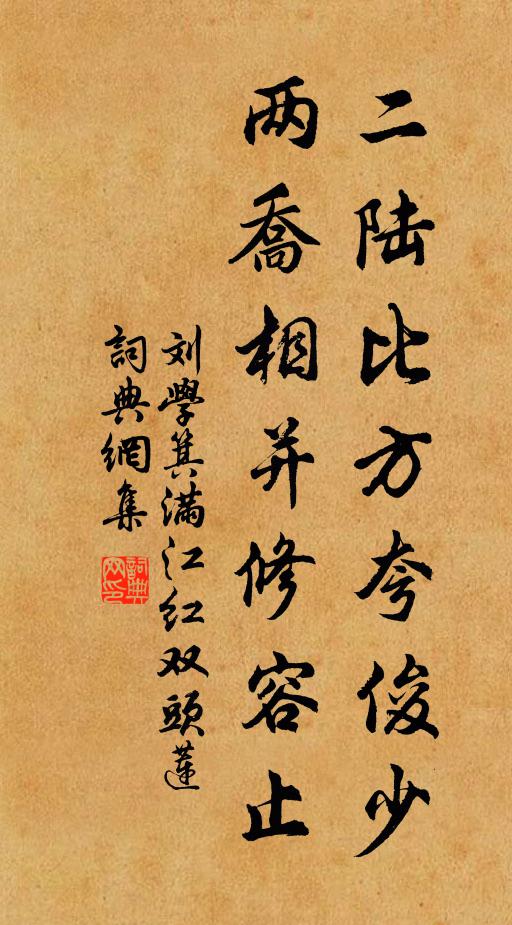 二陆比方夸俊少
两喬相并修容止
刘學箕满江红双頭蓮
詞典網集
詞典网印